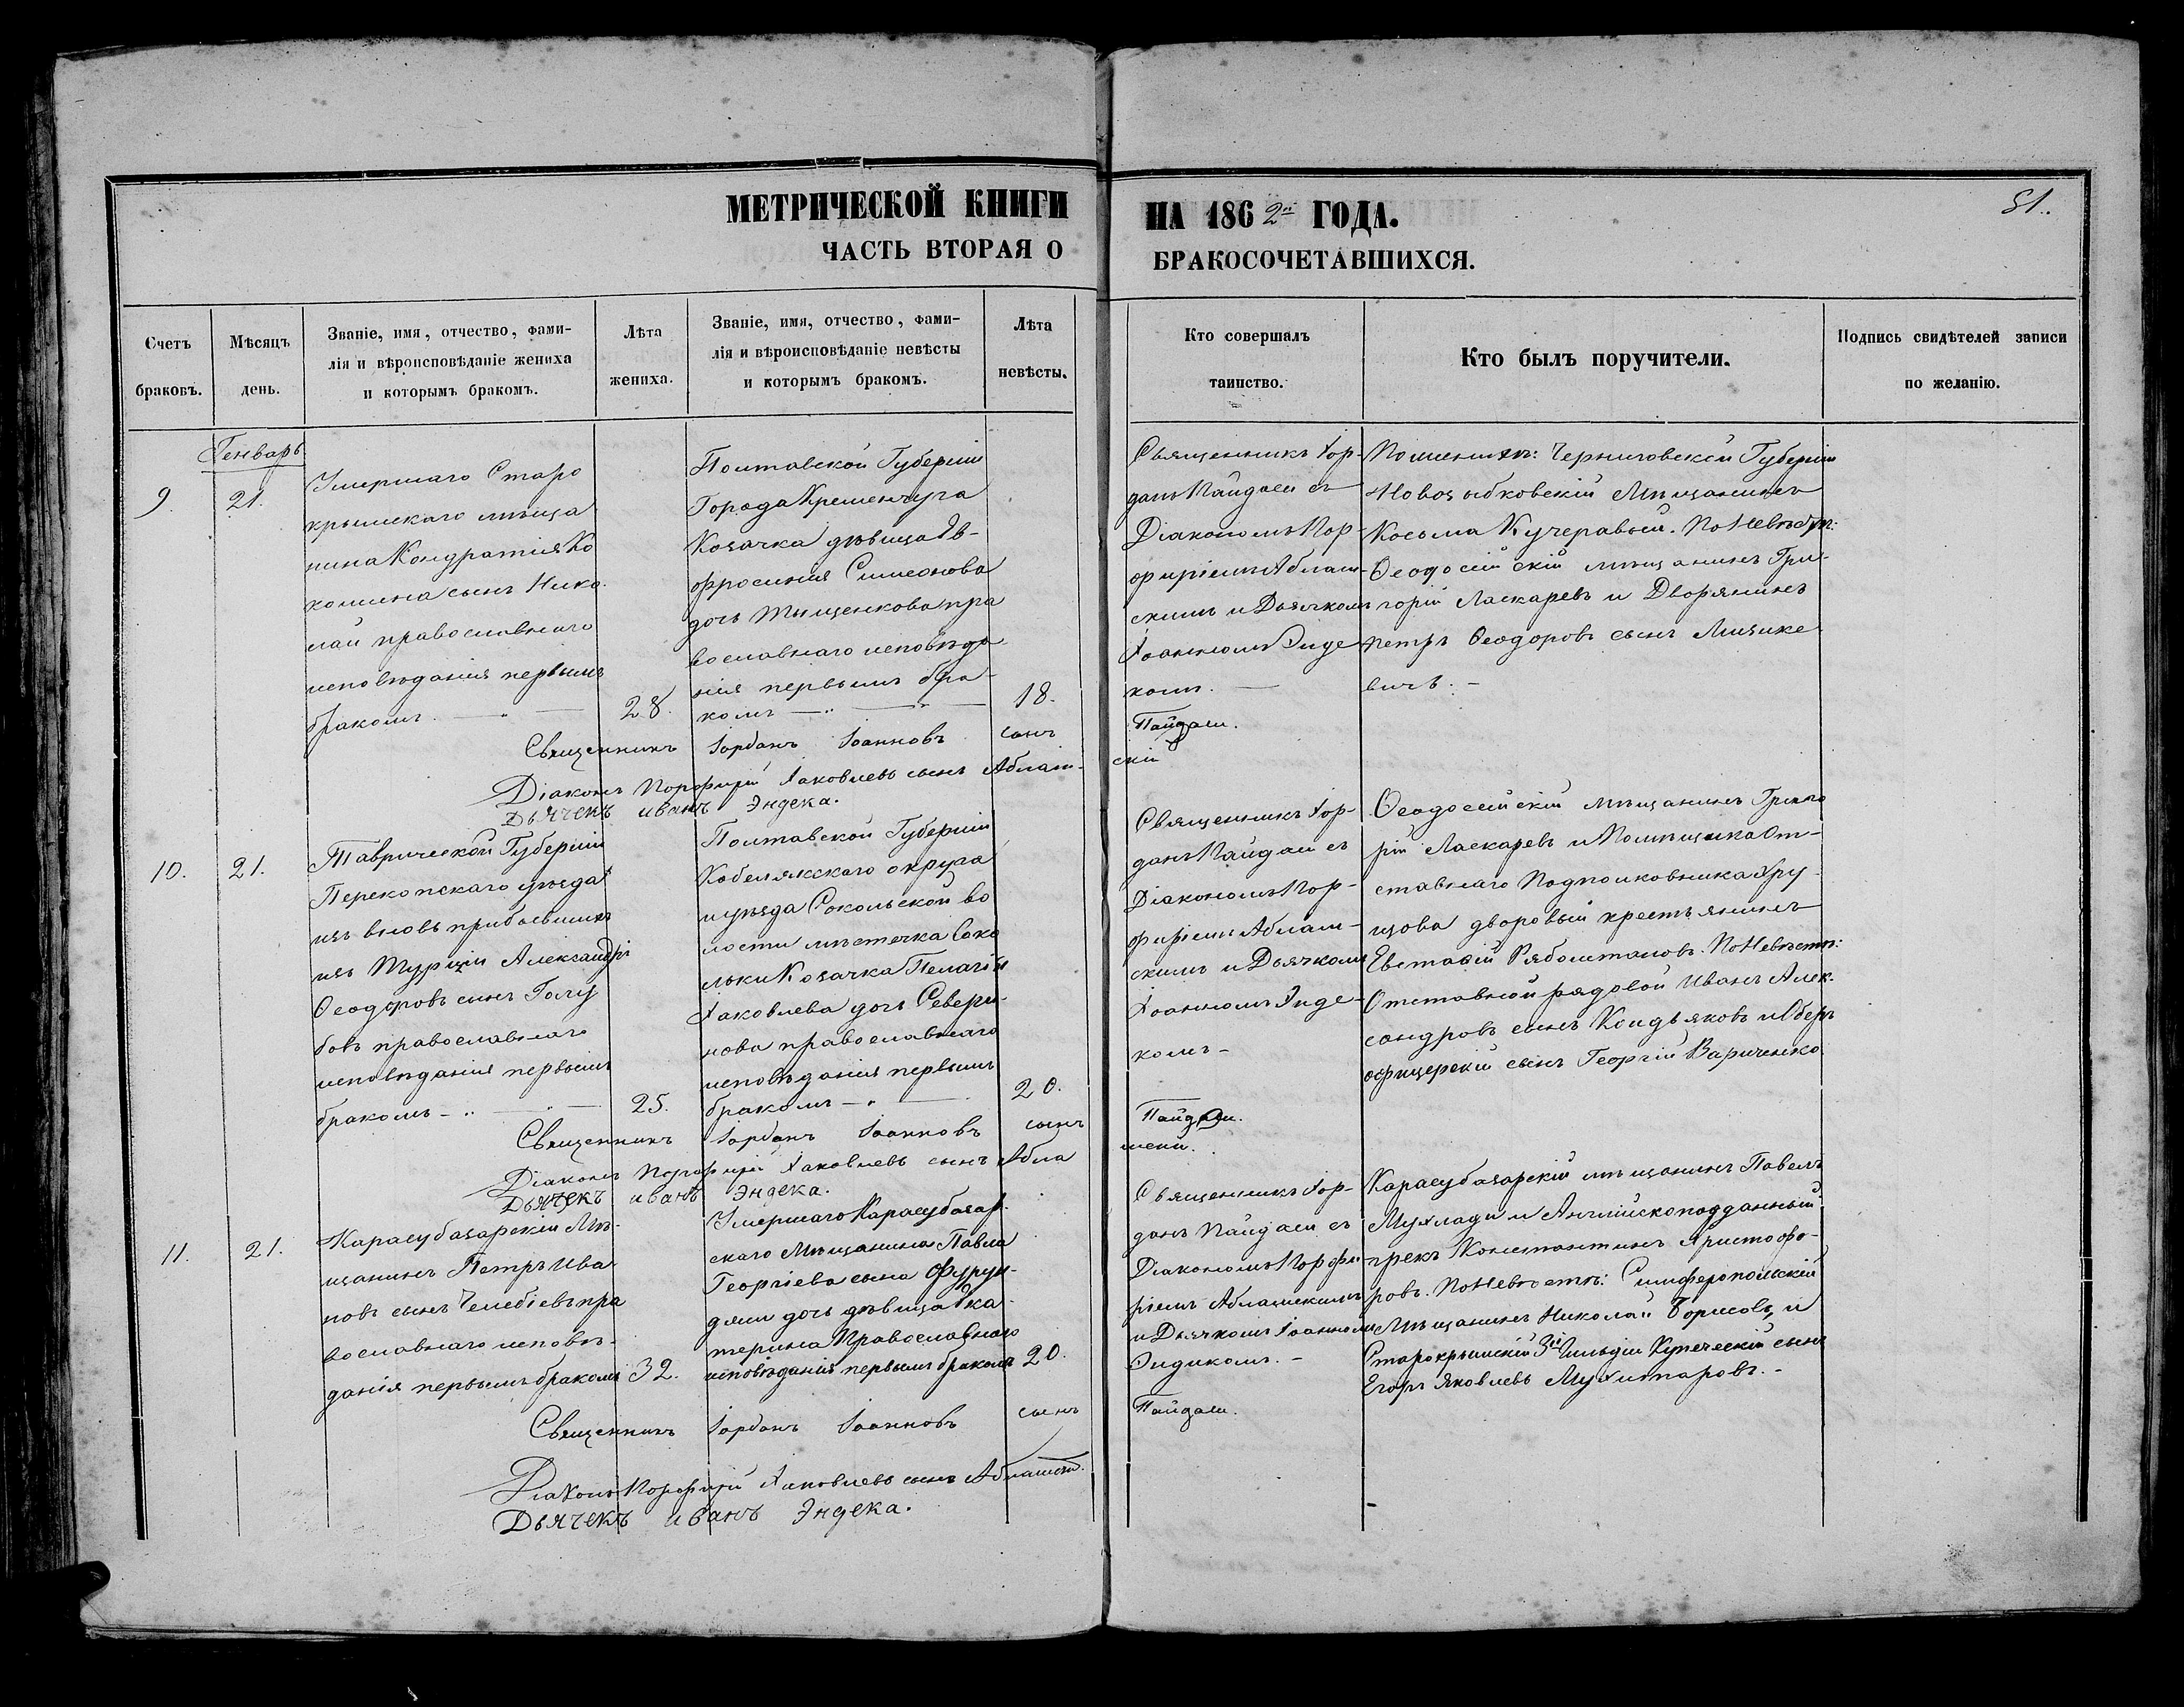 МЕТРИЧЕСКОЙ КНИГИ НА 1862й ГОДА.
51.
ЧАСТЬ ВТОРАЯ О БРАКОСОЧЕТАВШИХСЯ.
Счетъ
браковъ.
Мѣсяцъ
день.
Званіе, имя, отчество, фами-
лія и вѣроисповѣданіе жениха
и которымъ бракомъ.
Лѣта
жениха.
Званіе, имя, отчество, фами-
лія и вѣроисповѣданіе невѣсты
и которымъ бракомъ.
Лѣта
невѣсты.
Кто совершалъ
таинство.
Кто былъ поручители.
Подпись свидѣтелей записи
по желанію.
Генварь
9.
21.
Умершаго Старо
крымскаго мѣща
нина Кондратія Ко
комина сынъ Нико
лай православнаго
исповѣданія первымъ
бракомъ.
28.
Полтавской Губерніи
Города Кременчуга
Козачка дѣвица Ев-
фросинія Симеонова
дочь Тыщенкова пра
вославнаго исповѣда
нія первымъ бра-
комъ
18.
Священникъ Іор-
данъ Пайдаси съ
Діакономъ Пор-
фиріемъ Аблам-
скимъ и Дьячкомъ
Іоанномъ Энде
комъ.
По женихѣ: Черниговской Губерніи
Новозыбковскій Мѣщанинъ
Косьма Кучеравый. По Невѣстѣ:
Ѳеодосійскій мѣщанинъ Гри-
горій Ласкаревъ и Дворянинъ
Петръ Ѳеодоровъ сынъ Мицке
вичъ.
Священникъ Іорданъ Іоанновъ сынъ Пайдаси.
Діаконъ Порфирій Іаковлевъ сынъ Аблам-
скій
Дьячекъ Иванъ Эндека.
10.
21.
Таврической Губерніи
Перекопскаго уѣзда
изъ вновь прибывшихъ
изъ Турціи Александръ
Ѳеодоровъ сынъ Голу
бовъ православнаго
исповѣданія первымъ
бракомъ
25.
Полтавской Губерніи
Кобелякскаго округа
и уѣзда Сокольской во
лости мѣстечка Соко
льки Козачка Пелагія
Іаковлева дочь Севери-
нова православнаго
исповѣданія первымъ
бракомъ
20.
Священникъ Іор-
данъ Пайдаси съ
Діакономъ Пор-
фиріемъ Аблам-
скимъ и Дьячкомъ
Іоанномъ Энде-
комъ
Ѳеодосійскій мѣщанинъ Григо
рій Ласкаревъ и Помѣщика От-
ставнаго Подполковника Хру-
щова дворовый крестьянинъ
Евстафій Рябоштановъ. По Невѣстѣ:
Отставной рядовой Иванъ Алек-
сандровъ сынъ Кондьяковъ и Оберъ
офицерскій сынъ Георгій Вариченко
Священникъ Іорданъ Іоанновъ сынъ Пайдаси.
Діаконъ Порфирій Іаковлевъ сынъ Абла
мскій.
Дьячекъ Иванъ Эндека.
11.
21.
Карасубазарскій Мѣ-
щанинъ Петръ Ива
новъ сынъ Челебіевъ пра
вославнаго исповѣ-
данія первымъ бракомъ
32.
Умершаго Карасубазар-
скаго Мѣщанина Павла
Георгіева сына Фурун-
джи дочь дѣвица Ека-
терина Православнаго
исповѣданія первымъ бракомъ
20.
Священникъ Іор-
данъ Пайдаси съ
Діакономъ Порфи-
ріемъ Абламскимъ
и Дьячкомъ Іоанномъ
Эндекомъ.
Карасубазарскій мѣщанинъ Павелъ
Мухлади и Англійскоподданный
грекъ Константинъ Христофо-
ровъ. По Невѣстѣ: Симферопольскій
Мѣщанинъ Николай Борисовъ, и
Старокрымскій 3й Гильдіи Купеческій сынъ
Егоръ Яковлевъ Мухтаровъ.
Священникъ Іорданъ Іоанновъ сынъ Пайдаси.
Діаконъ Порфирій Іаковлевъ сынъ Абламскій.
Дьячекъ Иванъ Эндека.